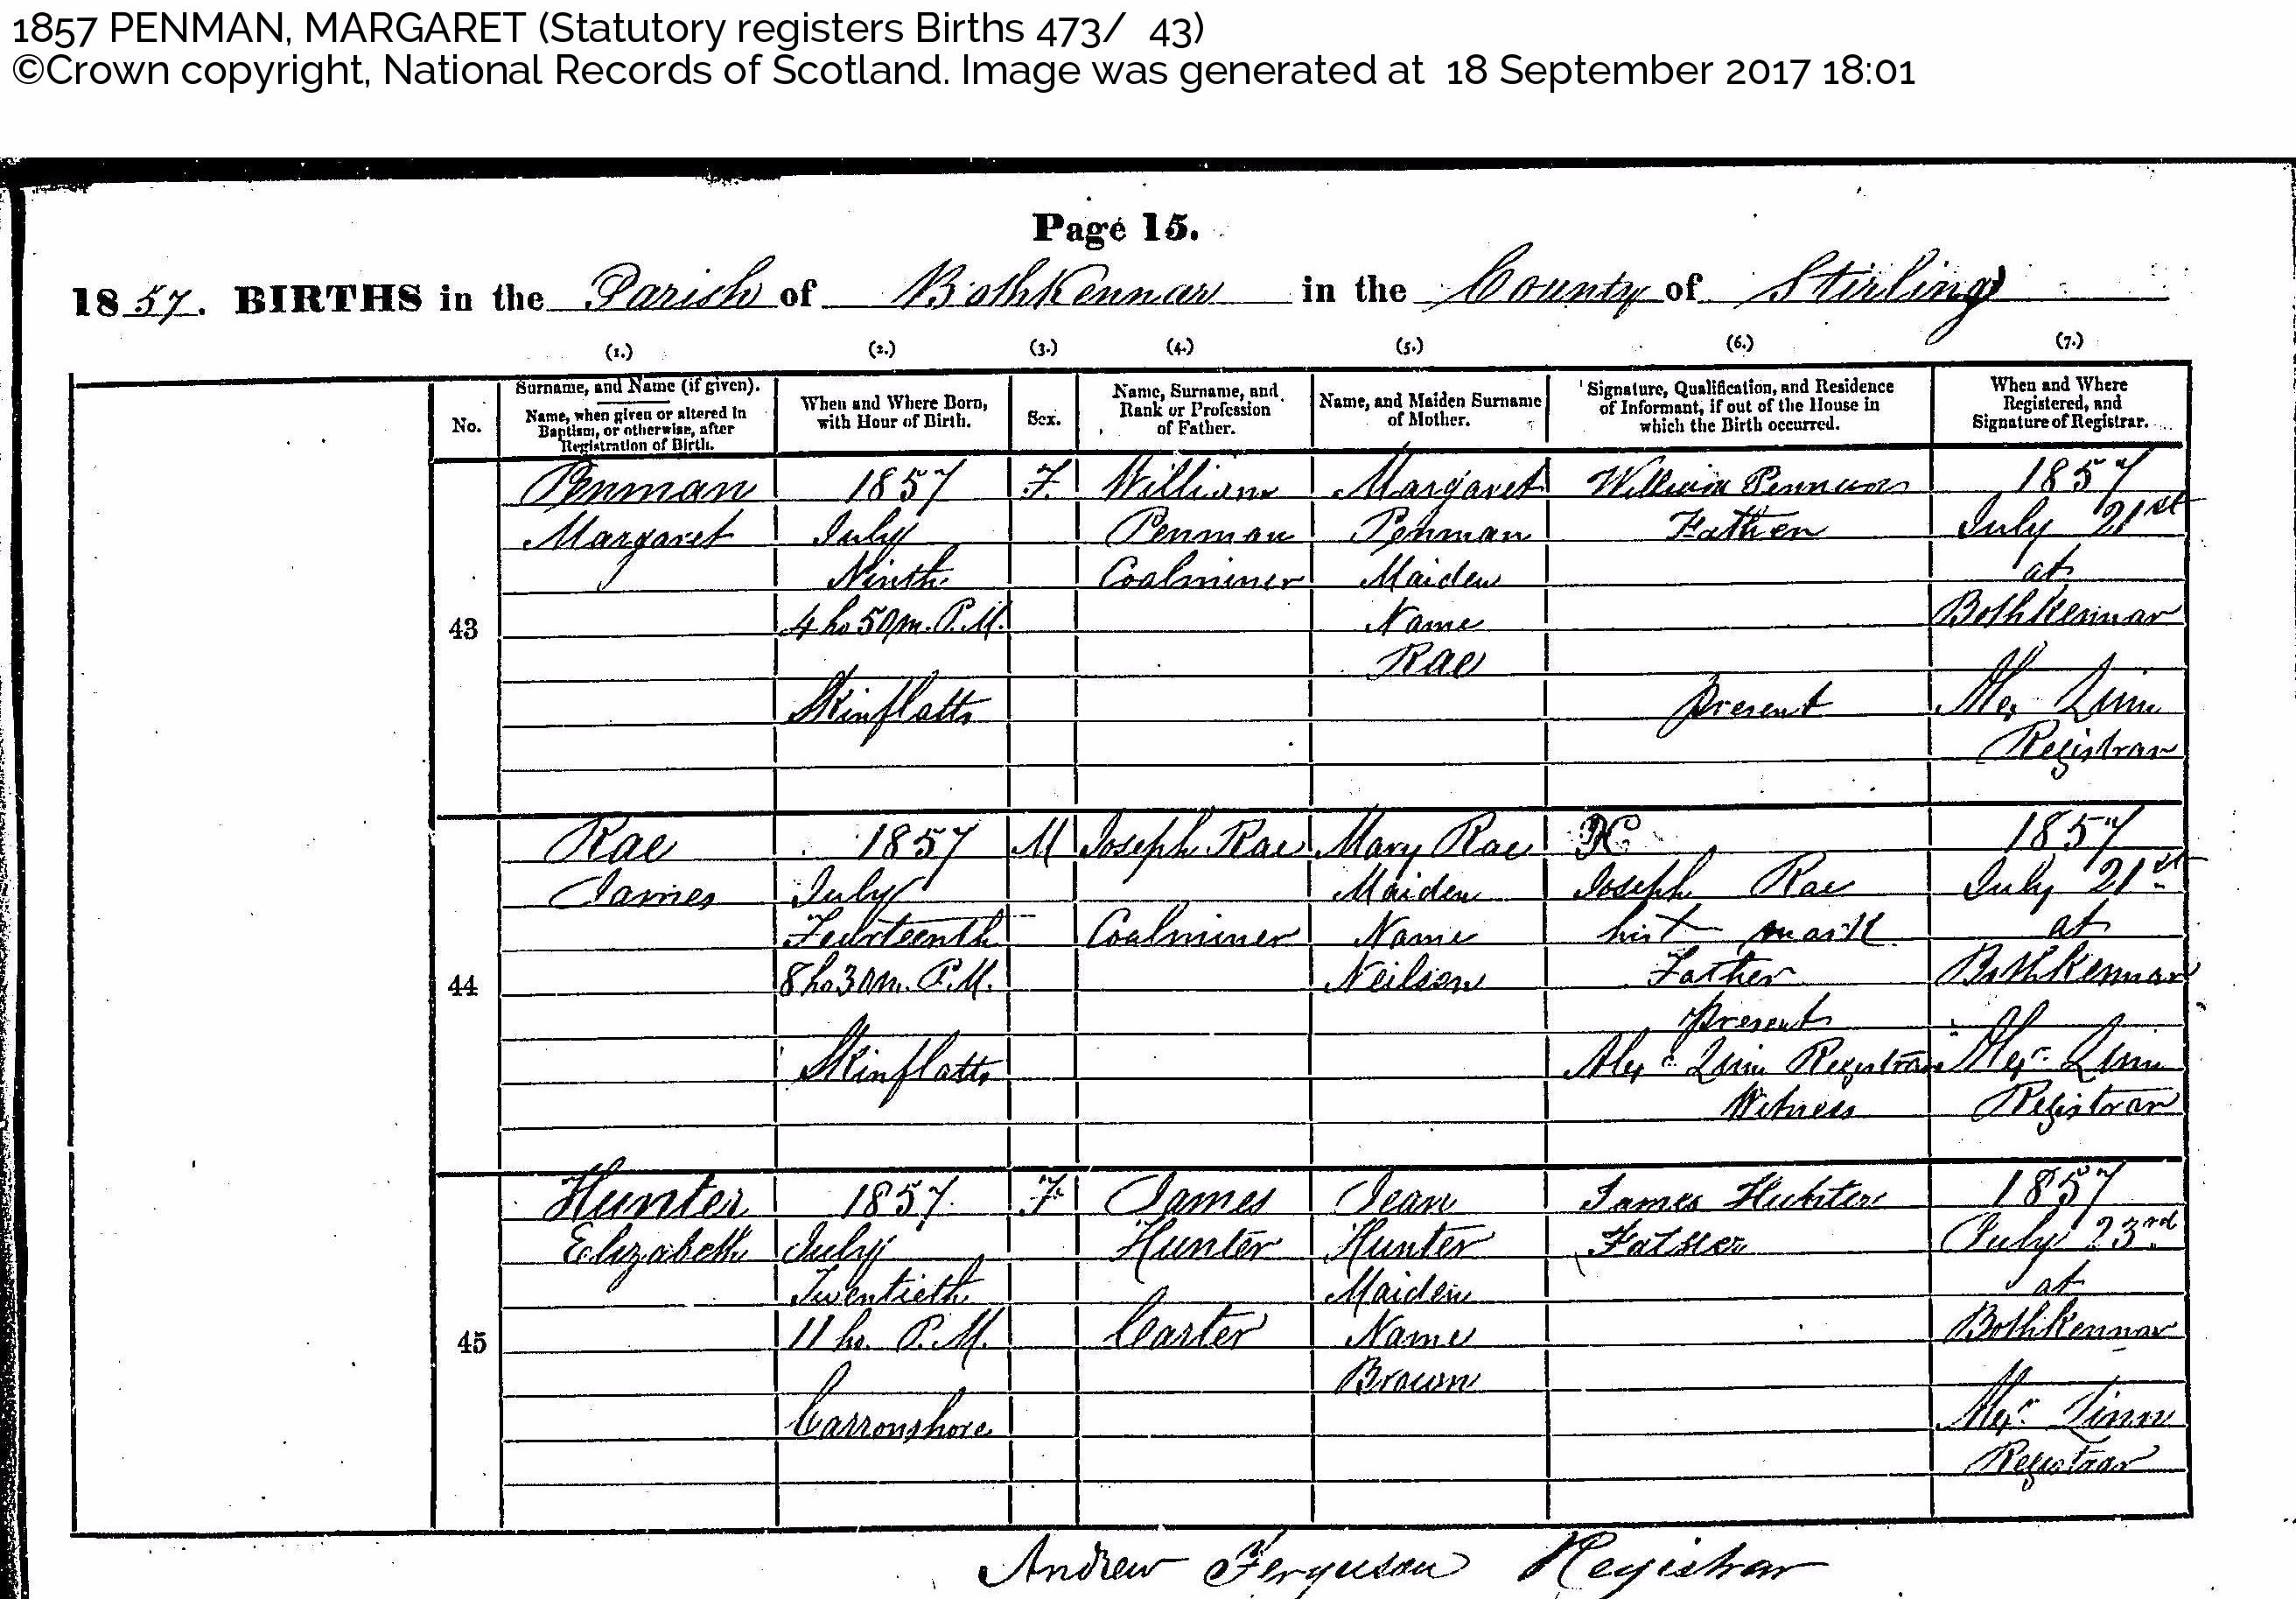 1857 PENMAN, MARGARET (Statutory registers Births 473/ 43)
©Crown copyright, National Records of Scotland. Image was generated at 18 September 2017 18:01
Page 15.
1857. BIRTHS in the Parish of BothKennar in the County of Stirling
(1.) (2.) (3.) (4.) (5.) (6.) (7.)
No.
Surname, and Name (if given).
Name, when given or altered in
Baptism, or otherwise, after
Registration of Birth.
When and Where Born,
with Hour of Birth.
Sex.
Name, Surname, and
Rank or Profession
of Father.
Name, and Maiden Surname
of Mother.
Signature, Qualification, and Residence
of Informant, if out of the House in
which the Birth occurred.
When and Where
Registered, and
Signature of Registrar.
43
Penman
Margaret
1857
July
Ninth
4 ho 50 m. P.M.
Skinflatts
F.
William
Penman
Coalminer
Margaret
Penman
Maiden
Name
Rae
William Penman
Father
present
1857
July 21st
at
BothKennar
Alex
Registrar
44
Rae
James
1857
July
Fourteenth
8 ho 30 m. P.M.
Skinflatts
M
Joseph Rae
Coalminer
Mary Rae
Maiden
Name
Neilson
Joseph Rae
his mark
Father
present
Alexr Registrar
Witness
1857
July 21st
at
BothKennar
Alexr
Registrar
45
Hunter
Elizabeth
1857
July
Twentieth
11 ho. P.M.
Carronshore
F
James
Hunter
Carter
Jean
Hunter
Maiden
Name
Brown
James Hunter
Father
1857
July 23rd
at
Bothkennar
Alexr
Registrar
Andrew Ferguson Registrar